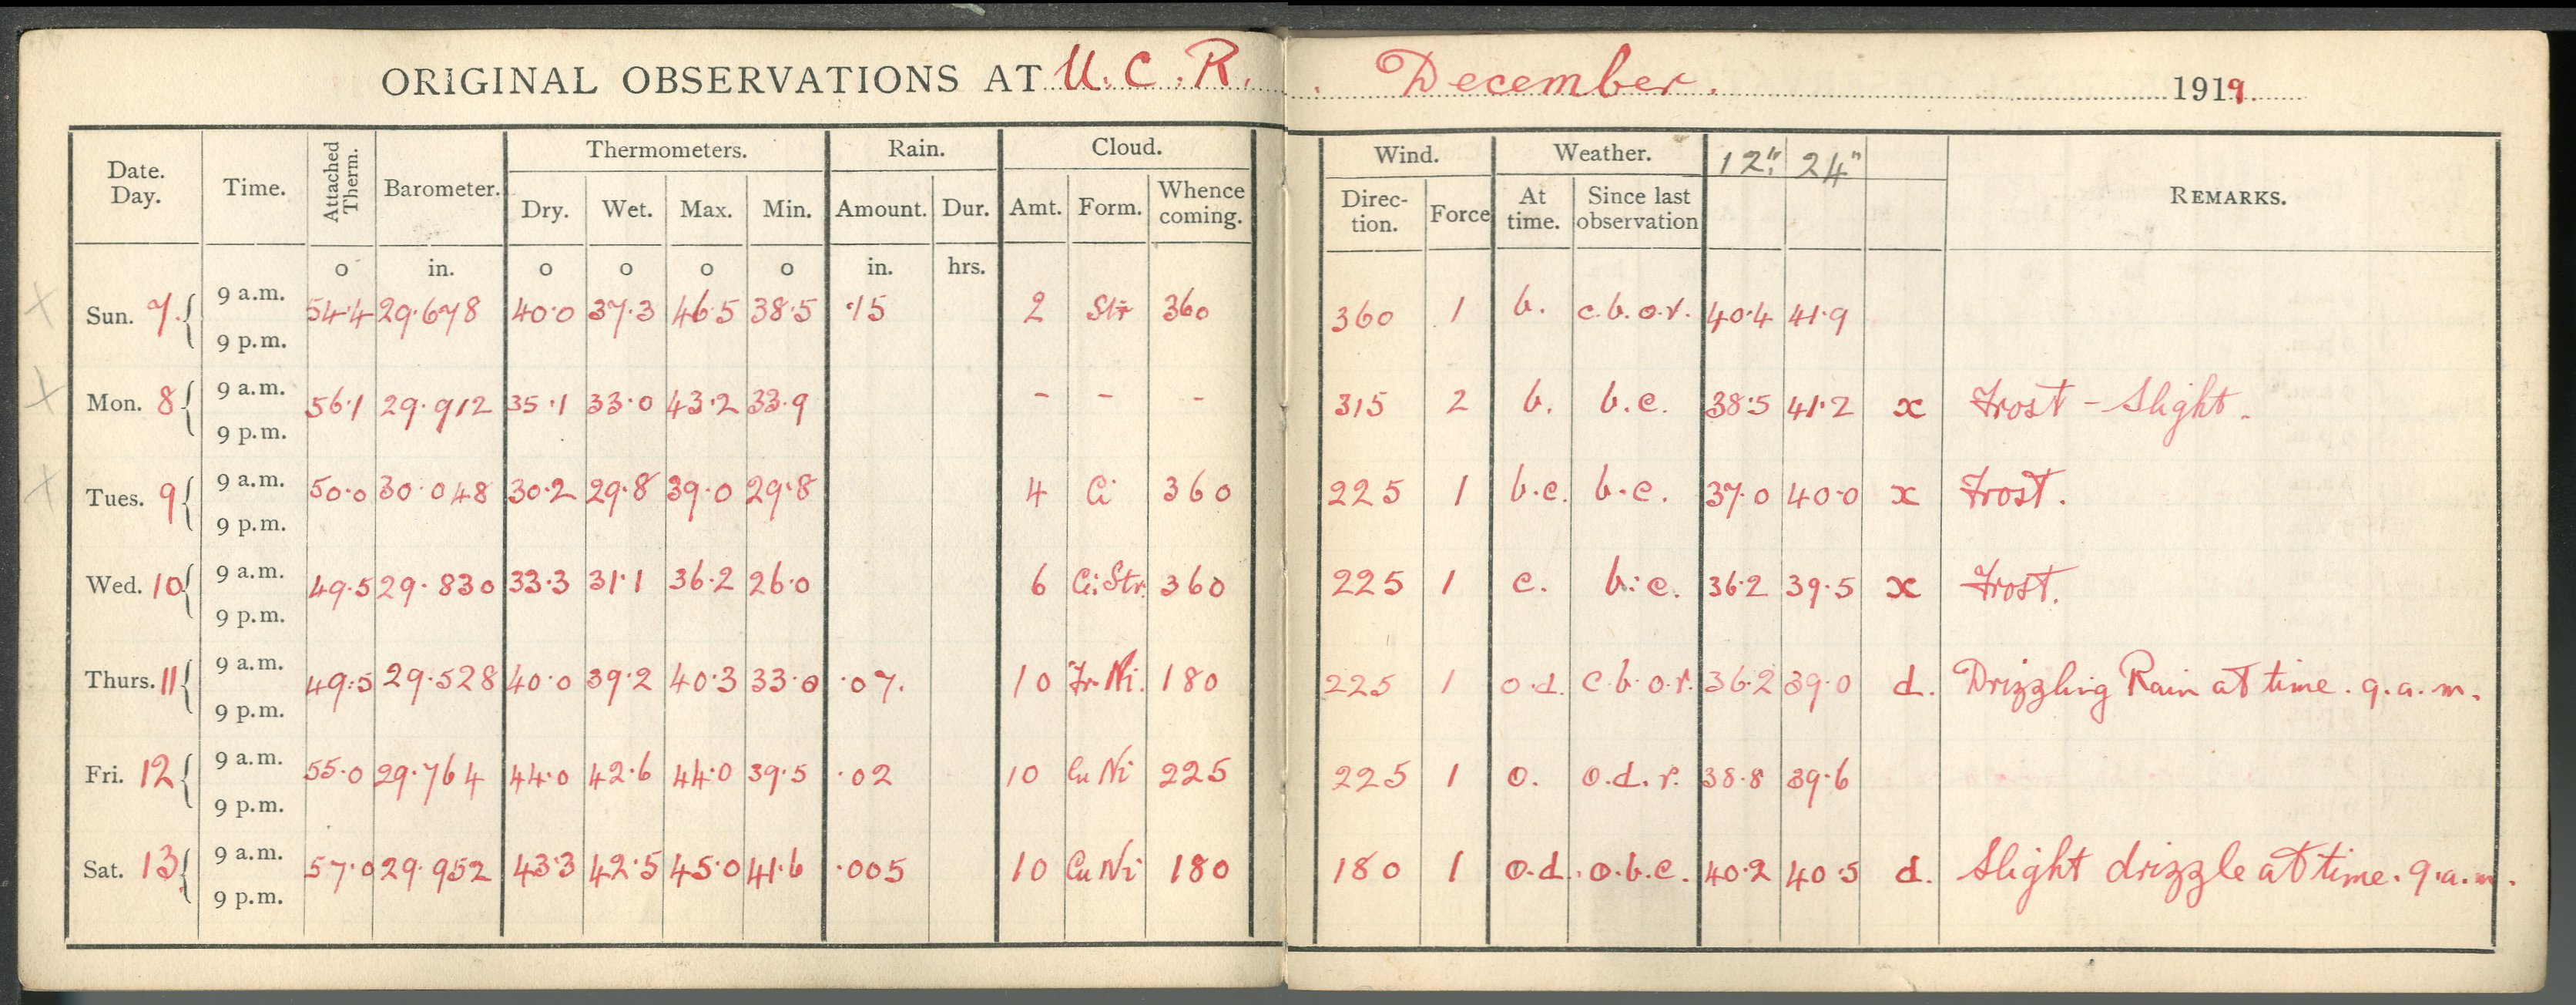 ORIGINAL OBSERVATIONS AT U.C.R. December. 1919.
Date. Day. Time. Attached Therm. Barometer. Thermometers. Rain. Cloud. Wind. Weather. 12" 24" REMARKS.
Dry. Wet. Max. Min. Amount. Dur. Amt. Form. Whence coming. Direc-tion. Force At time. Since last observation
o in. o o o o in. hrs.
Sun. 7. 9 a.m. 54.4 29.678 40.0 37.3 46.5 38.5 .15 2 Str 360 360 1 b. c.b.o.r. 40.4 41.9
9 p.m.
Mon. 8 9 a.m. 56.1 29.912 35.1 33.0 43.2 33.9 - - - 315 2 b. b.c. 38.5 41.2 x Frost - Slight.
9 p.m.
Tues. 9 9 a.m. 50.0 30.048 30.2 29.8 39.0 29.8 4 Ci 360 225 1 b.c. b.c. 37.0 40.0 x Frost.
9 p.m.
Wed. 10 9 a.m. 49.5 29.830 33.3 31.1 36.2 26.0 6 Ci.Str. 360 225 1 c. b.c. 36.2 39.5 x Frost.
9 p.m.
Thurs. 11 9 a.m. 49.5 29.528 40.0 39.2 40.3 33.0 .07. 10 Fr.Ni. 180 225 1 o.d. c.b.o.r. 36.2 39.0 d. Drizzling Rain at time. 9.a.m.
9 p.m.
Fri. 12 9 a.m. 55.0 29.764 44.0 42.6 44.0 39.5 .02 10 Cu Ni 225 225 1 o. o.d.r. 38.8 39.6
9 p.m.
Sat. 13 9 a.m. 57.0 29.952 43.3 42.5 45.0 41.6 .005 10 Cu Ni 180 180 1 o.d. o.b.c. 40.2 40.5 d. Slight drizzle at time. 9.a.m.
9 p.m.